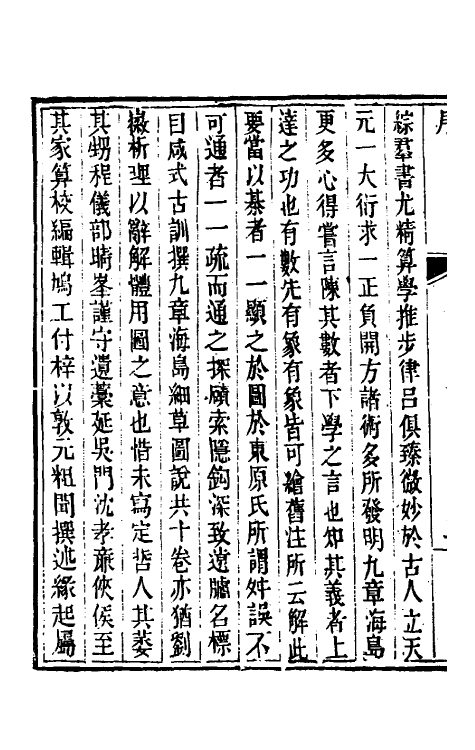 序
綜羣書尤精算學推步律吕俱臻微妙於古人立天
元一大衍求一正負開方諸術多所發明九章海島
更多心得嘗言陳其數者下學之言也知其義者上
達之功也有數先有象有象皆可繪舊注所云解此
要當以棊者一一顯之於圖於東原氏所謂舛誤不
可通者一一疏而通之探賾索隱鉤深致遠臚名標
目咸式古訓撰九章海島細草圖說共十卷亦猶劉
徽析理以辭解體用圖之意也惜未寫定哲人其萎
其甥程儀部晴峯謹守遺藳延吳門沈孝亷俠侯至
其家算校編輯鳩工付梓以敦元粗聞撰述緣起屬